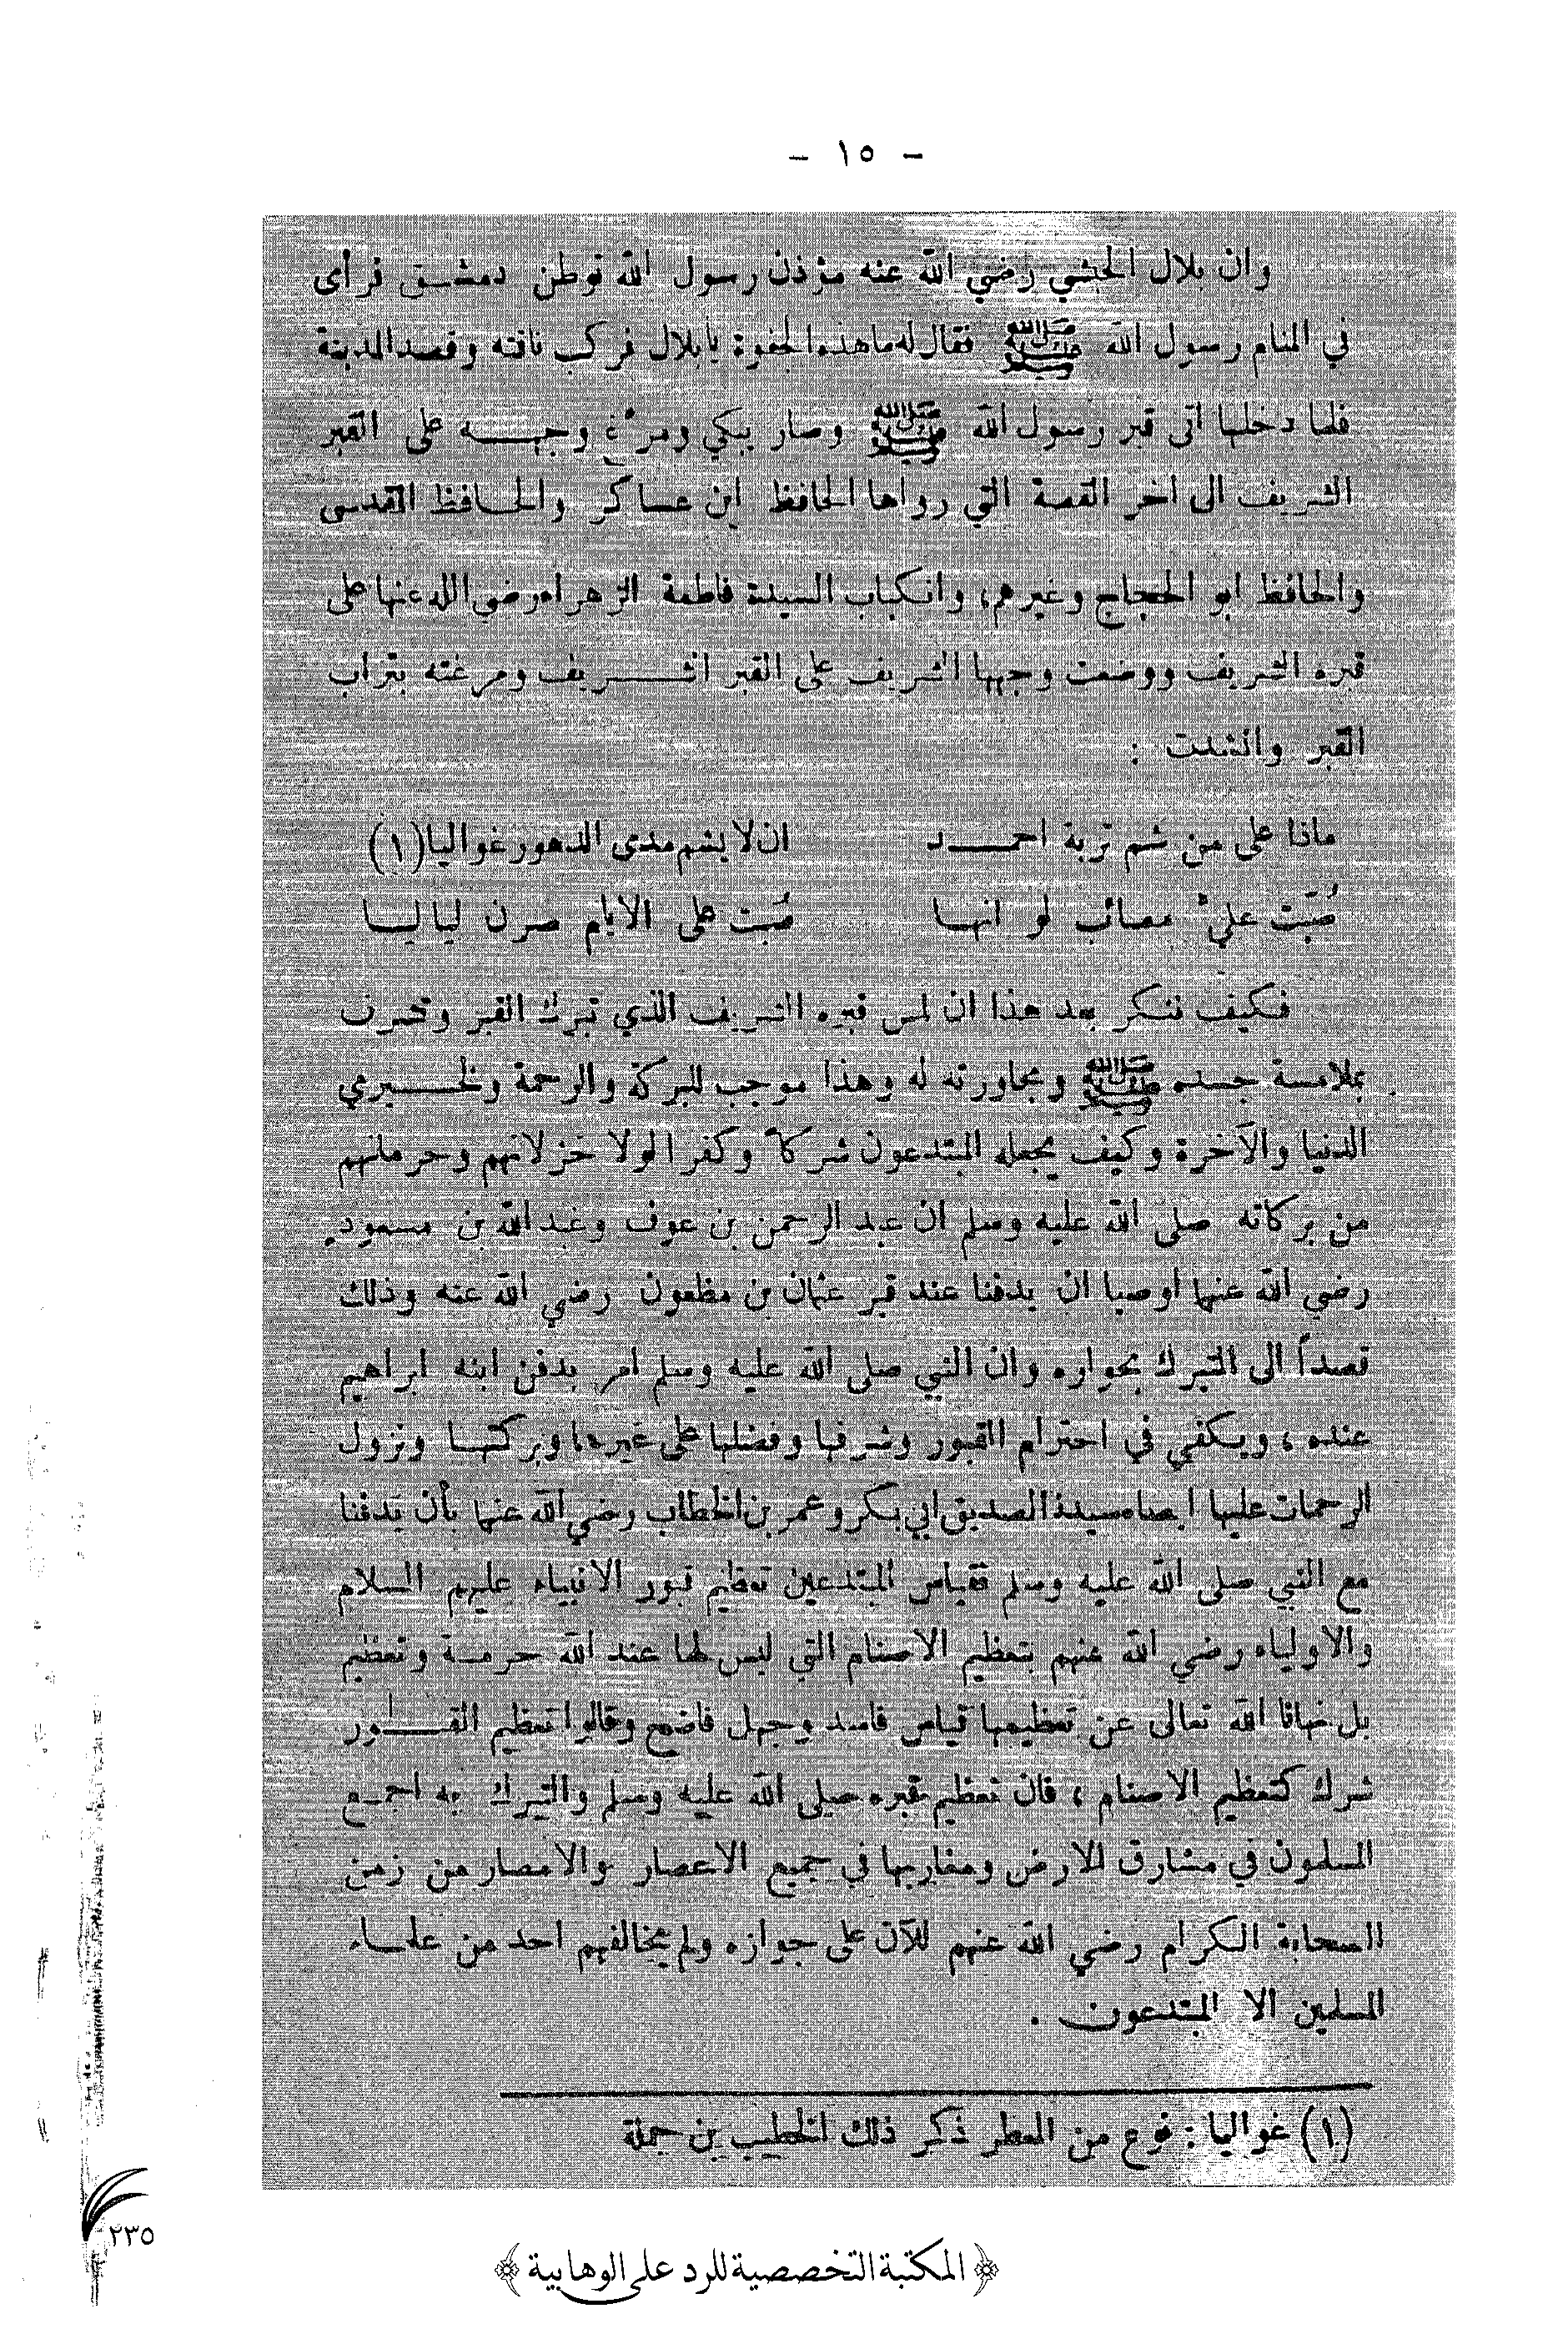 - ١٥ -
وان بلال الحبشي رضي الله عنه مؤذن رسول الله توطن دمشق فرأى
في المنام رسول الله ﷺ فقال له ما هذه الجفوة يا بلال فركب ناقته وقصد المدينة
فلما دخلها اتى قبر رسول الله ﷺ وصار يبكي ومرّغ وجهه على القبر
الشريف الى اخر القصة التي رواها الحافظ ابن عساكر والحافظ المقدسي
والحافظ ابو الحجاج وغيرهم، وانكباب السيدة فاطمة الزهراء رضي الله عنها على
قبره الشريف ووضعت وجهها الشريف على القبر الشريف ومرغته بتراب
القبر وانشدت :
ماذا على من شم تربة احمد ان لا يشم مدى الدهور غواليا (١)
صُبّت عليّ مصائب لو انها صُبت على الايام صرن لياليا
فكيف ننكر بعد هذا ان لمس قبره الشريف الذي تبرك القبر وتشرف
بملامسة جسده ﷺ ومجاورته له وهذا موجب للبركة والرحمة ولخيري
الدنيا والآخرة وكيف يجعله المبتدعون شركاً وكفر الولا خزلانهم وحرمانهم
من بركاته صلى الله عليه وسلم ان عبد الرحمن بن عوف وعبد الله بن مسعود
رضي الله عنهما أوصيا ان يدفنا عند قبر عثمان بن مظعون رضي الله عنه وذلك
قصداً الى التبرك بجواره وان النبي صلى الله عليه وسلم امر بدفن ابنه ابراهيم
عنده ، ويكفي في احترام القبور وشرفها وفضلها على غيرها وبركتها ونزول
الرحمات عليها ايصاء سيدنا الصديق ابي بكر وعمر بن الخطاب رضي الله عنهما بأن يدفنا
مع النبي صلى الله عليه وسلم فقياس المبتدعين تعظيم قبور الانبياء عليهم السلام
والاولياء رضي الله عنهم بتعظيم الاصنام التي ليس لها عند الله حرمة وتعظيم
بل نهانا الله تعالى عن تعظيمها قياس فاسد وجهل فاضح وقالوا تعظيم القبور
شرك كتعظيم الاصنام ، فان تعظيم قبره صلى الله عليه وسلم والتبرك به اجمع
المسلمون في مشارق الارض ومغاربها في جميع الاعصار والامصار من زمن
الصحابة الكرام رضي الله عنهم للآن على جوازه ولم يخالفهم احد من علماء
المسلمين الا المبتدعون .
(١) غواليا : نوع من العطر ذكر ذلك الخطيب بن جملة
٢٣٥
﴿المكتبة التخصصية للرد على الوهابية﴾